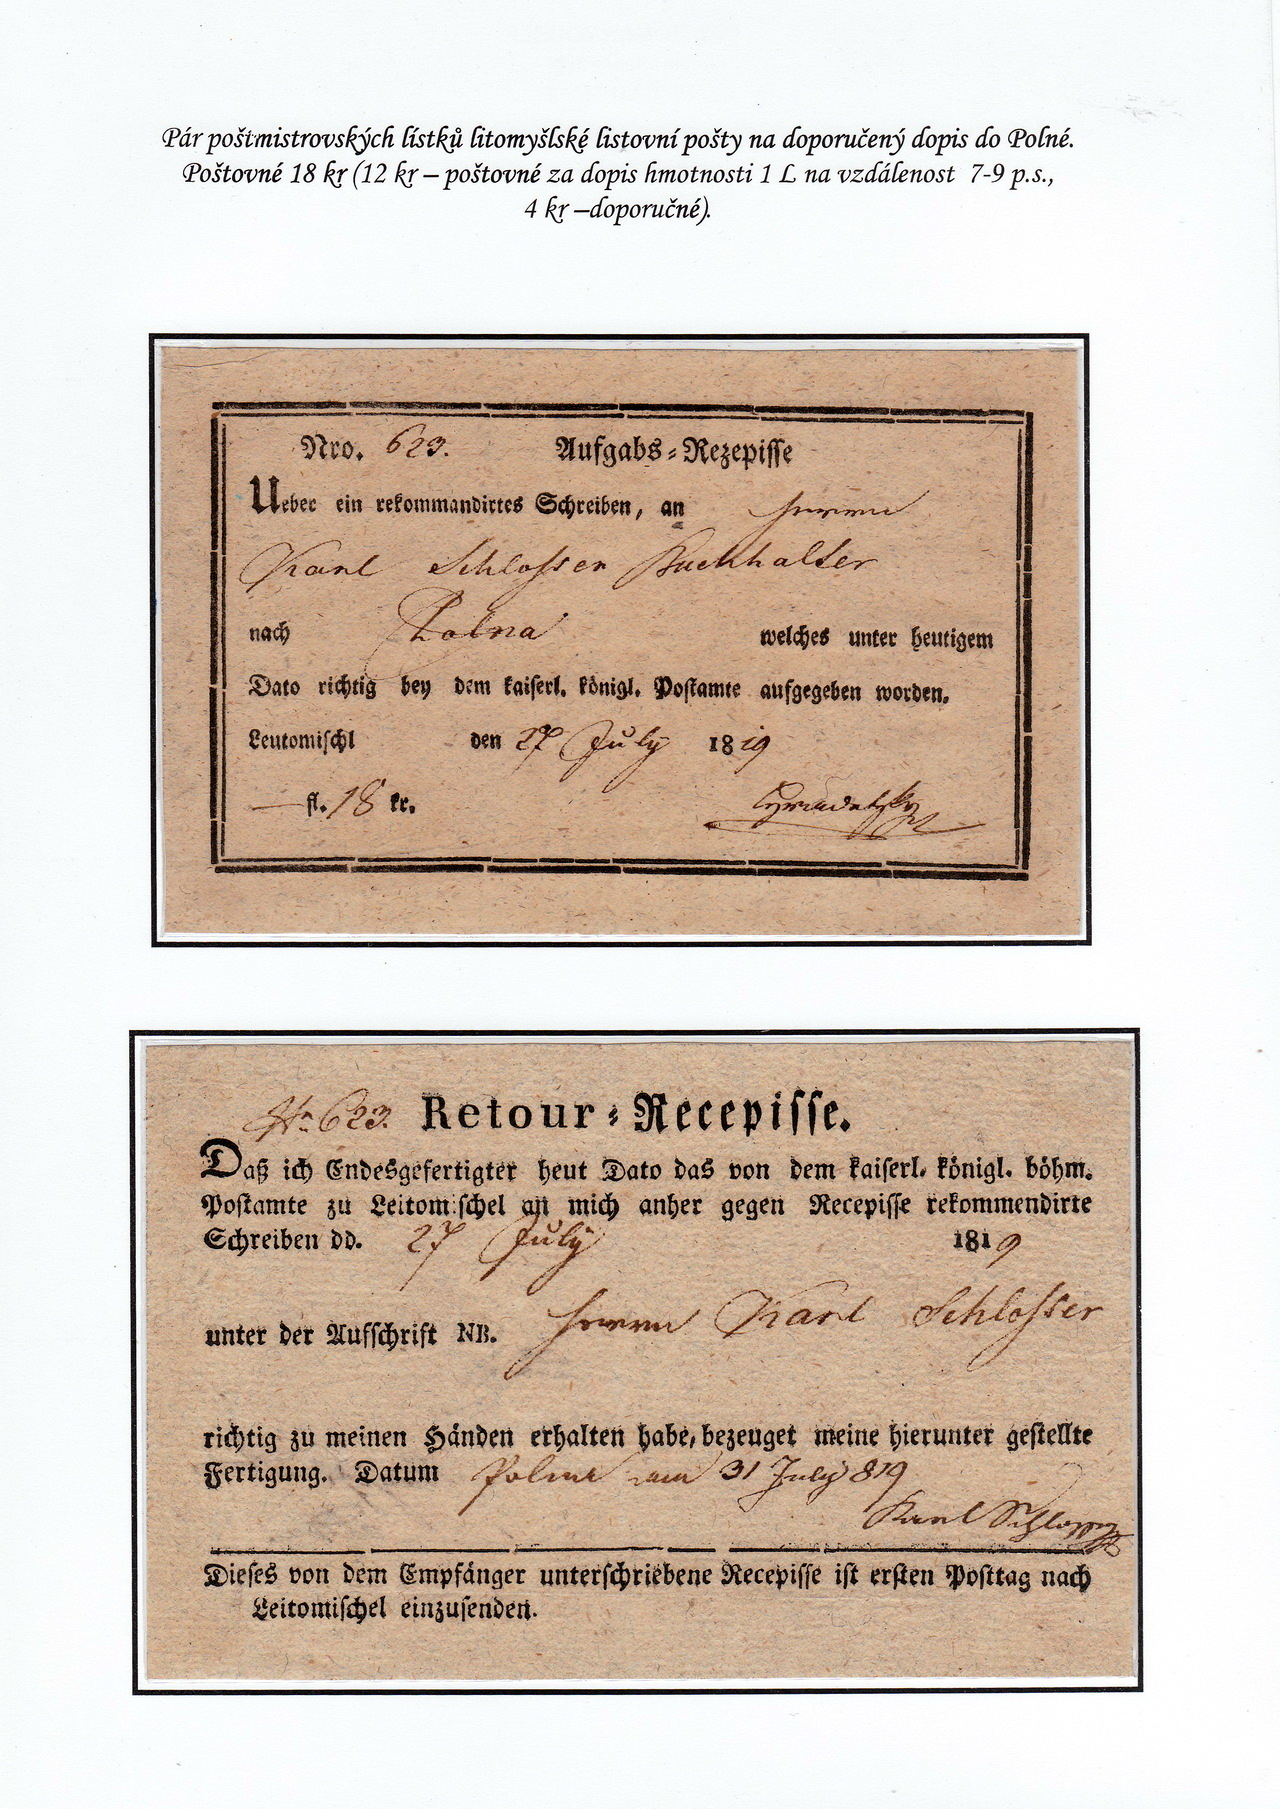 Pár poštmistrovských lístků litomyšlské listovní pošty na doporučený dopis do Polné.
Poštovné 18 kr (12 kr – poštovné za dopis hmotnosti 1 L na vzdálenost 7-9 p.s.,
4 kr –doporučné).
Nro. 623. Aufgabs-Rezepisse
Ueber ein rekommandirtes Schreiben, an Herrn
Karl Schlosser Buchhalter
nach Polna welches unter heutigem
Dato richtig bey dem kaiserl. königl. Postamte aufgegeben worden.
Leutomischl den 27 July 1819
— fl. 18 kr.
No 623. Retour-Recepisse.
Daß ich Endesgefertigter heut Dato das von dem kaiserl. königl. böhm.
Postamte zu Leitomischel an mich anher gegen Recepisse rekommendirte
Schreiben dd. 27 July 1819
unter der Aufschrift NB. Herrn Karl Schlosser
richtig zu meinen Händen erhalten habe, bezeuget meine hierunter gestellte
Fertigung. Datum Polna am 31 July 819
Karl Schlosser
Dieses von dem Empfänger unterschriebene Recepisse ist ersten Posttag nach
Leitomischel einzusenden.